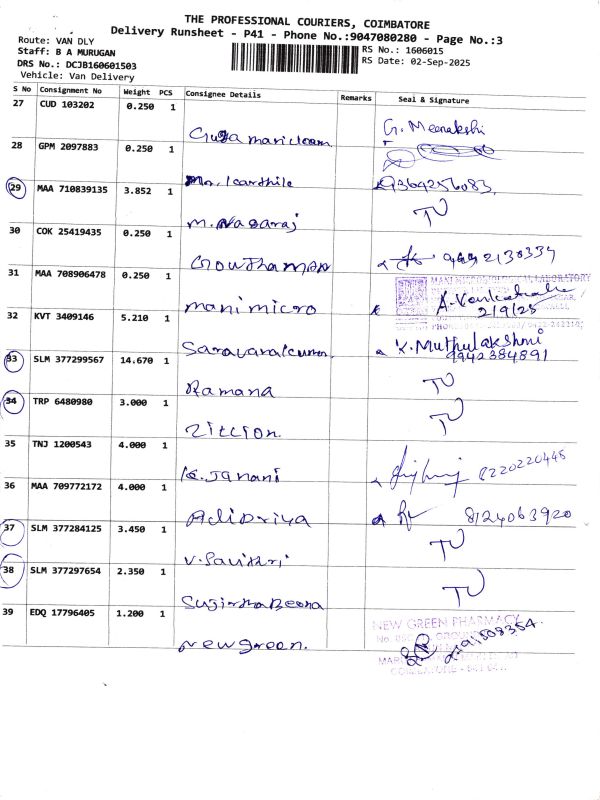 THE PROFESSIONAL COURIERS, COIMBATORE
Delivery Runsheet - P41 - Phone No.:9047080280 - Page No.:3
Route: VAN DLY
Staff: B A MURUGAN
RS No.: 1606015
DRS No.: DCJB160601503
RS Date: 02-Sep-2025
Vehicle: Van Delivery
S No Consignment No Weight PCS Consignee Details Remarks Seal & Signature
27 CUD 103202 0.250 1
G. Meenakshi
28 GPM 2097883 0.250 1
Mr. Karthik
9369256083
29 MAA 710839135 3.852 1
M. Nagaraj TU
30 COK 25419435 0.250 1
Gowthaman
31 MAA 708906478 0.250 1
MANI MICROBIOLOGICAL LABORATORY
manimicro
2/9/25
32 KVT 3409146 5.210 1
K. Muthulakshmi
9942384891
33 SLM 377299567 14.670 1
Ramana TU
34 TRP 6480980 3.000 1
Zillion TU
35 TNJ 1200543 4.000 1
K. Janani 8220220448
36 MAA 709772172 4.000 1
Adipriya 8124063920
37 SLM 377284125 3.450 1
V. Savithri TU
38 SLM 377297654 2.350 1
TU
39 EDQ 17796405 1.200 1
NEW GREEN PHARMACY
Newgreen.